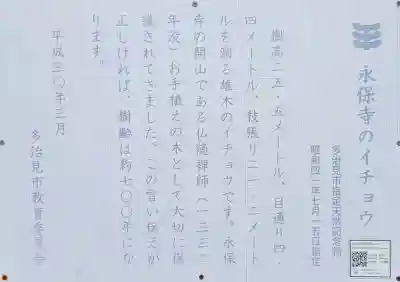 永保寺のイチョウ
多治見市指定天然記念物
昭和四一年七月一五日指定
樹高二五・五メートル、目通り四・
四メートル、枝張り二一・二メート
ルを測る雄木のイチョウです。永保
寺の開山である仏徳禅師(一三三二
年没)お手植えの木として大切に保
護されてきました。この言い伝えが
正しければ、樹齢は約七〇〇年にな
ります。
平成三〇年三月
多治見市教育委員会